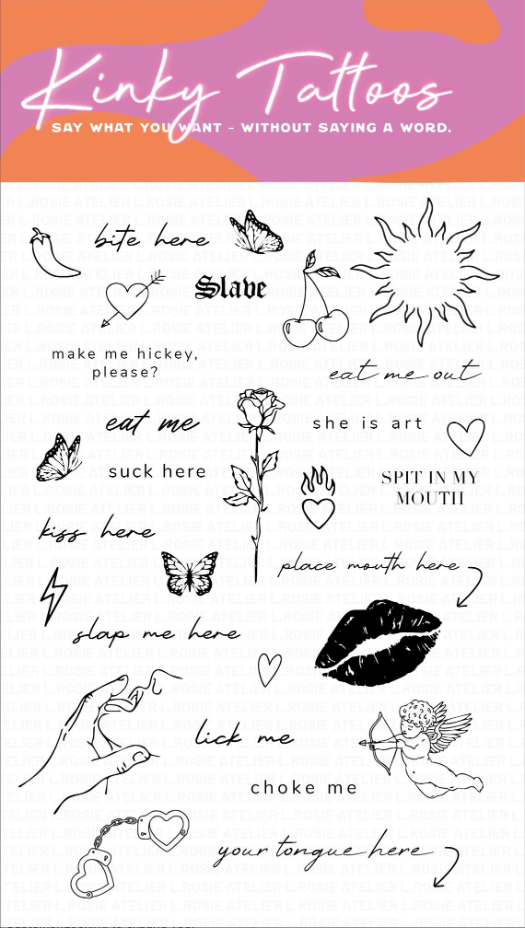 Kinky Tattoos
SAY WHAT YOU WANT - WITHOUT SAYING A WORD.
bite here
Slave
make me hickey,
please?
eat me out
eat me
she is art
suck here
SPIT IN MY
MOUTH
kiss here
place mouth here
slap me here
lick me
choke me
your tongue here
ATELIER L.ROSIE ATELIER L.ROSIE ATELIER L.ROSIE